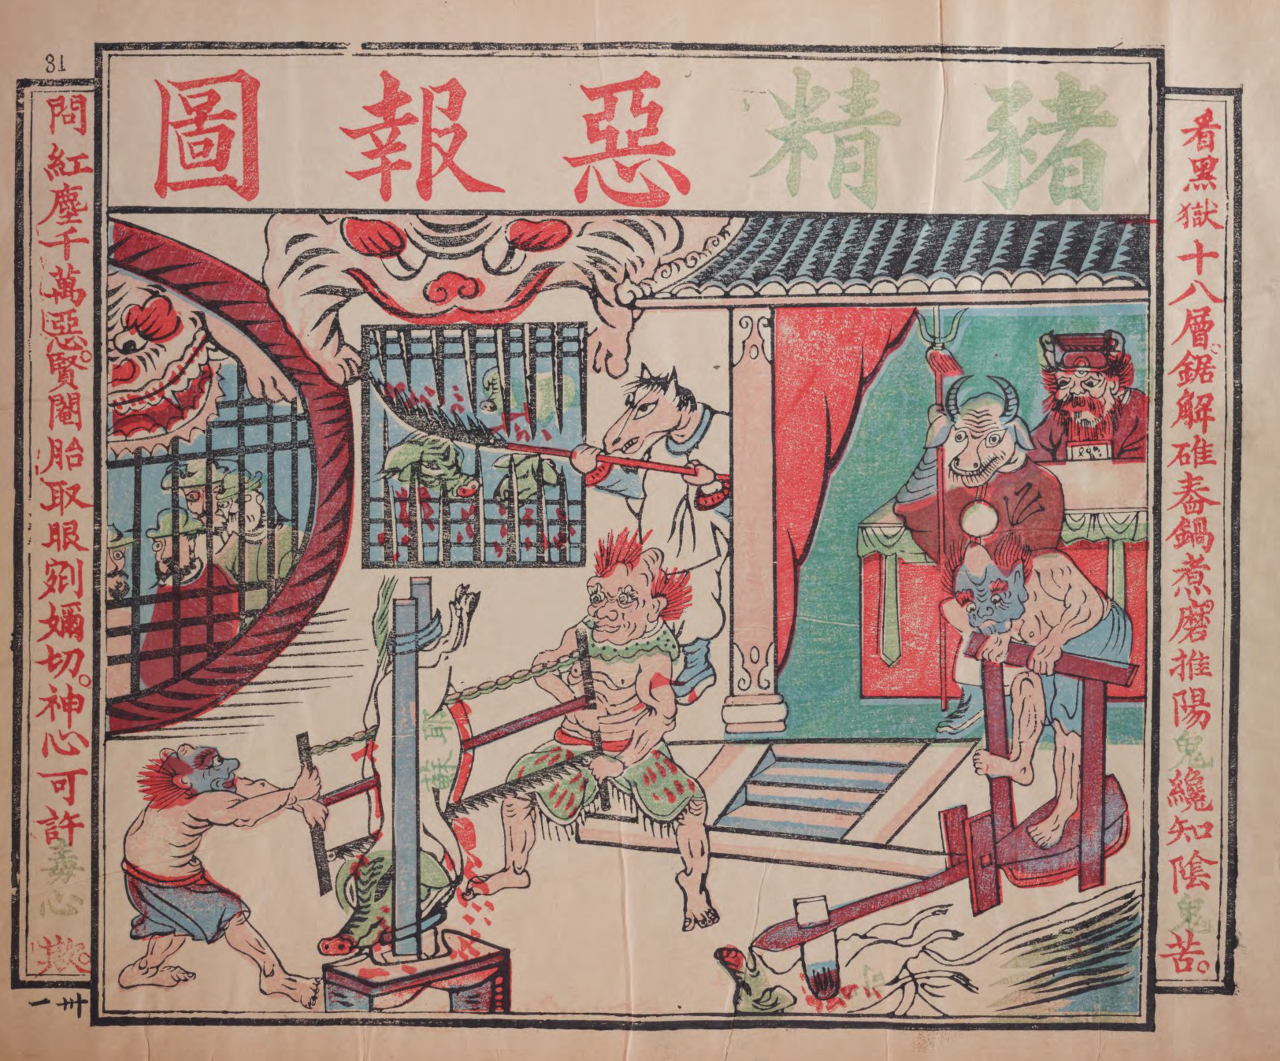 豬精惡報圖
看黑獄十八層。鋸解碓舂鍋煮磨。推陽鬼纔知陰鬼苦。
問紅塵千萬惡。賢閹胎取眼剜。切。神心可許毒心欺。
耶穌
31
卅一